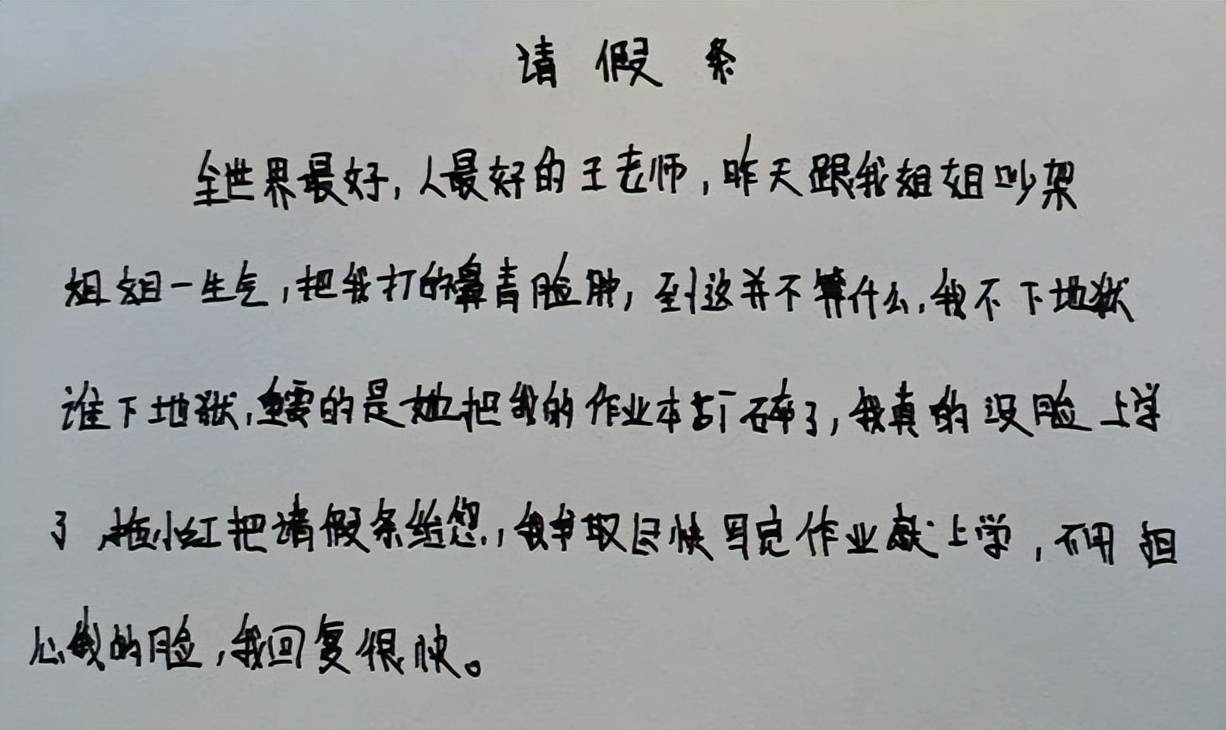 请假条
全世界最好,人最好的王老师,昨天跟我姐姐吵架
姐姐一生气,把我打的鼻青脸肿,到这并不算什么,我不下地狱
谁下地狱,重要的是她把我的作业本撕碎了,我真的没脸上学
了,拖小红把请假条给您,我争取尽快写完作业就上学,不用担
心我的脸,我回复很快。